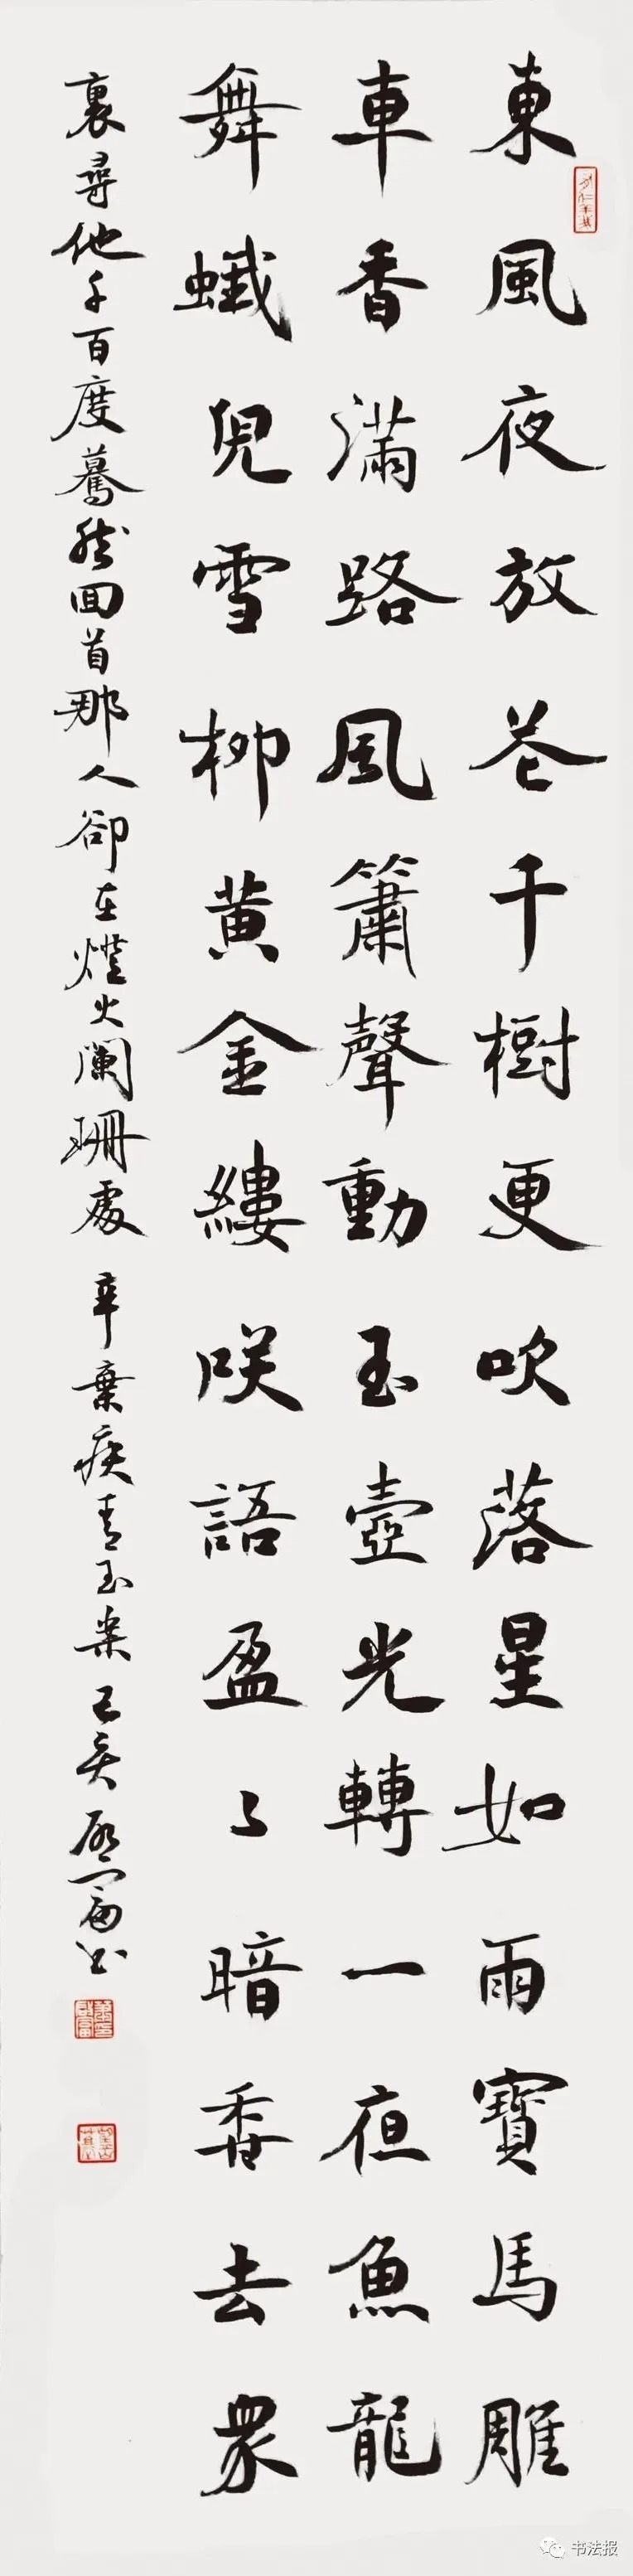 東風夜放花千樹更吹落星如雨寶馬雕
車香滿路風簫聲動玉壺光轉一夜魚龍
舞蛾兒雪柳黃金縷咲語盈〻暗香去眾
裏尋他千百度驀然回首那人卻在燈火闌珊處 辛棄疾青玉案 己亥 啟富書
书法报